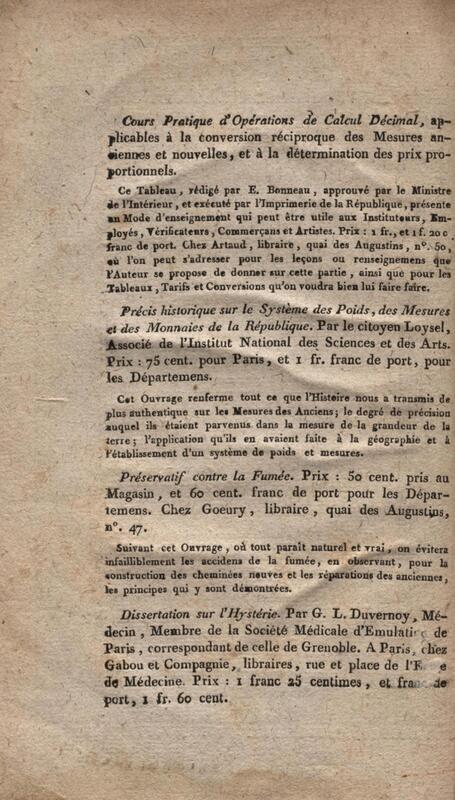 Cours Pratique d'Opérations de Calcul Décimal, ap-
plicables à la conversion réciproque des Mesures an-
ciennes et nouvelles, et à la détermination des prix pro-
portionnels.
Ce Tableau, rédigé par E. Bonneau, approuvé par le Ministre
de l'Intérieur, et exécuté par l'Imprimerie de la République, présente
un Mode d'enseignement qui peut être utile aux Instituteurs, Em-
ployés, Vérificateurs, Commerçans et Artistes. Prix : 1 fr., et 1 f. 20 c
franc de port. Chez Artaud, libraire, quai des Augustins, n°. 50,
où l'on peut s'adresser pour les leçons ou renseignemens que
l'Auteur se propose de donner sur cette partie, ainsi que pour les
Tableaux, Tarifs et Conversions qu'on voudra bien lui faire faire.
Précis historique sur le Système des Poids, des Mesures
et des Monnaies de la République. Par le citoyen Loysel,
Associé de l'Institut National des Sciences et des Arts.
Prix : 75 cent. pour Paris, et 1 fr. franc de port, pour
les Départemens.
Cet Ouvrage renferme tout ce que l'Histoire nous a transmis de
plus authentique sur les Mesures des Anciens; le degré de précision
auquel ils étaient parvenus dans la mesure de la grandeur de la
terre; l'application qu'ils en avaient faite à la géographie et à
l'établissement d'un système de poids et mesures.
Préservatif contre la Fumée. Prix : 50 cent. pris au
Magasin, et 60 cent. franc de port pour les Dépar-
temens. Chez Goeury, libraire, quai des Augustins,
n°. 47.
Suivant cet Ouvrage, où tout paraît naturel et vrai, on évitera
infailliblement les accidens de la fumée, en observant, pour la
construction des cheminées neuves et les réparations des anciennes,
les principes qui y sont démontrées.
Dissertation sur l'Hystérie. Par G. L. Duvernoy, Mé-
decin, Membre de la Société Médicale d'Emulation de
Paris, correspondant de celle de Grenoble. A Paris, chez
Gabou et Compagnie, libraires, rue et place de
de Médecine. Prix : 1 franc 25 centimes, et franc de
port, 1 fr. 60 cent.